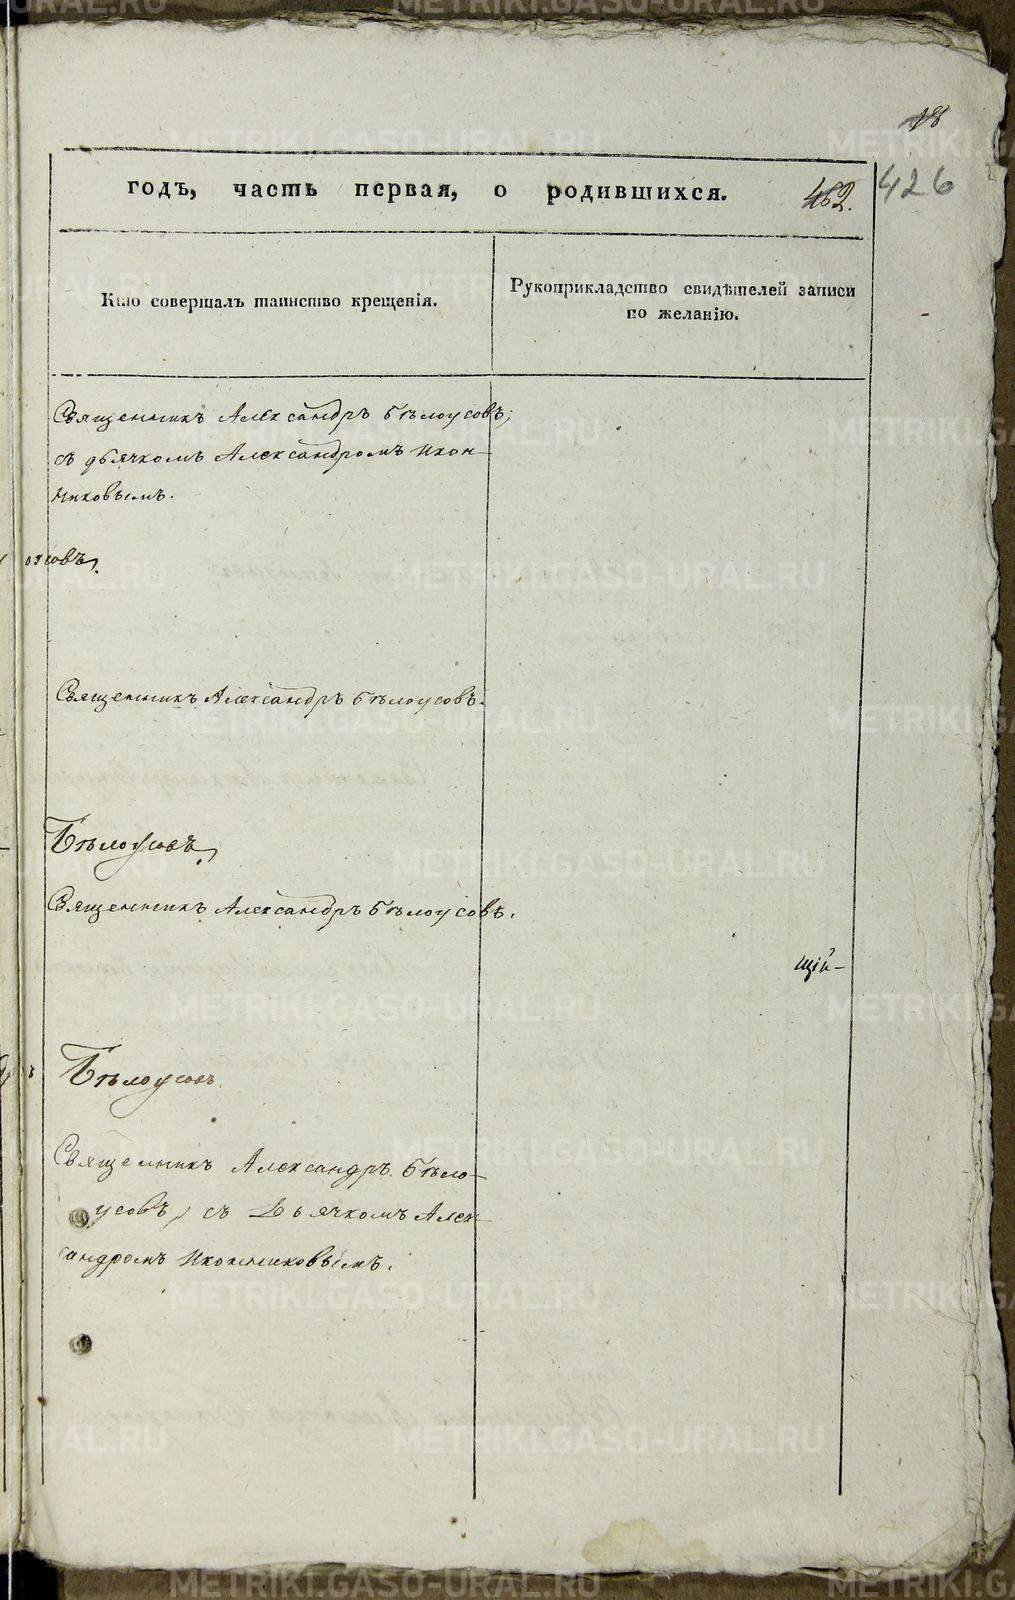 18
годъ, часть первая, о родившихся.
462.
426
Кто совершалъ таинство крещенія.
Рукоприкладство свидѣтелей записи
по желанію.
Священникъ Александръ Бѣлоусовъ;
съ дьячкомъ Александромъ Икон-
никовымъ.
усовъ.
Священникъ Александръ Бѣлоусовъ.
Бѣлоусовъ,
Священникъ Александръ Бѣлоусовъ.
щій-
Бѣлоусовъ
Священникъ Александръ Бѣло-
усовъ, съ Дьячкомъ Алек-
сандромъ Иконниковымъ.
METRIKI.GASO-URAL.RU